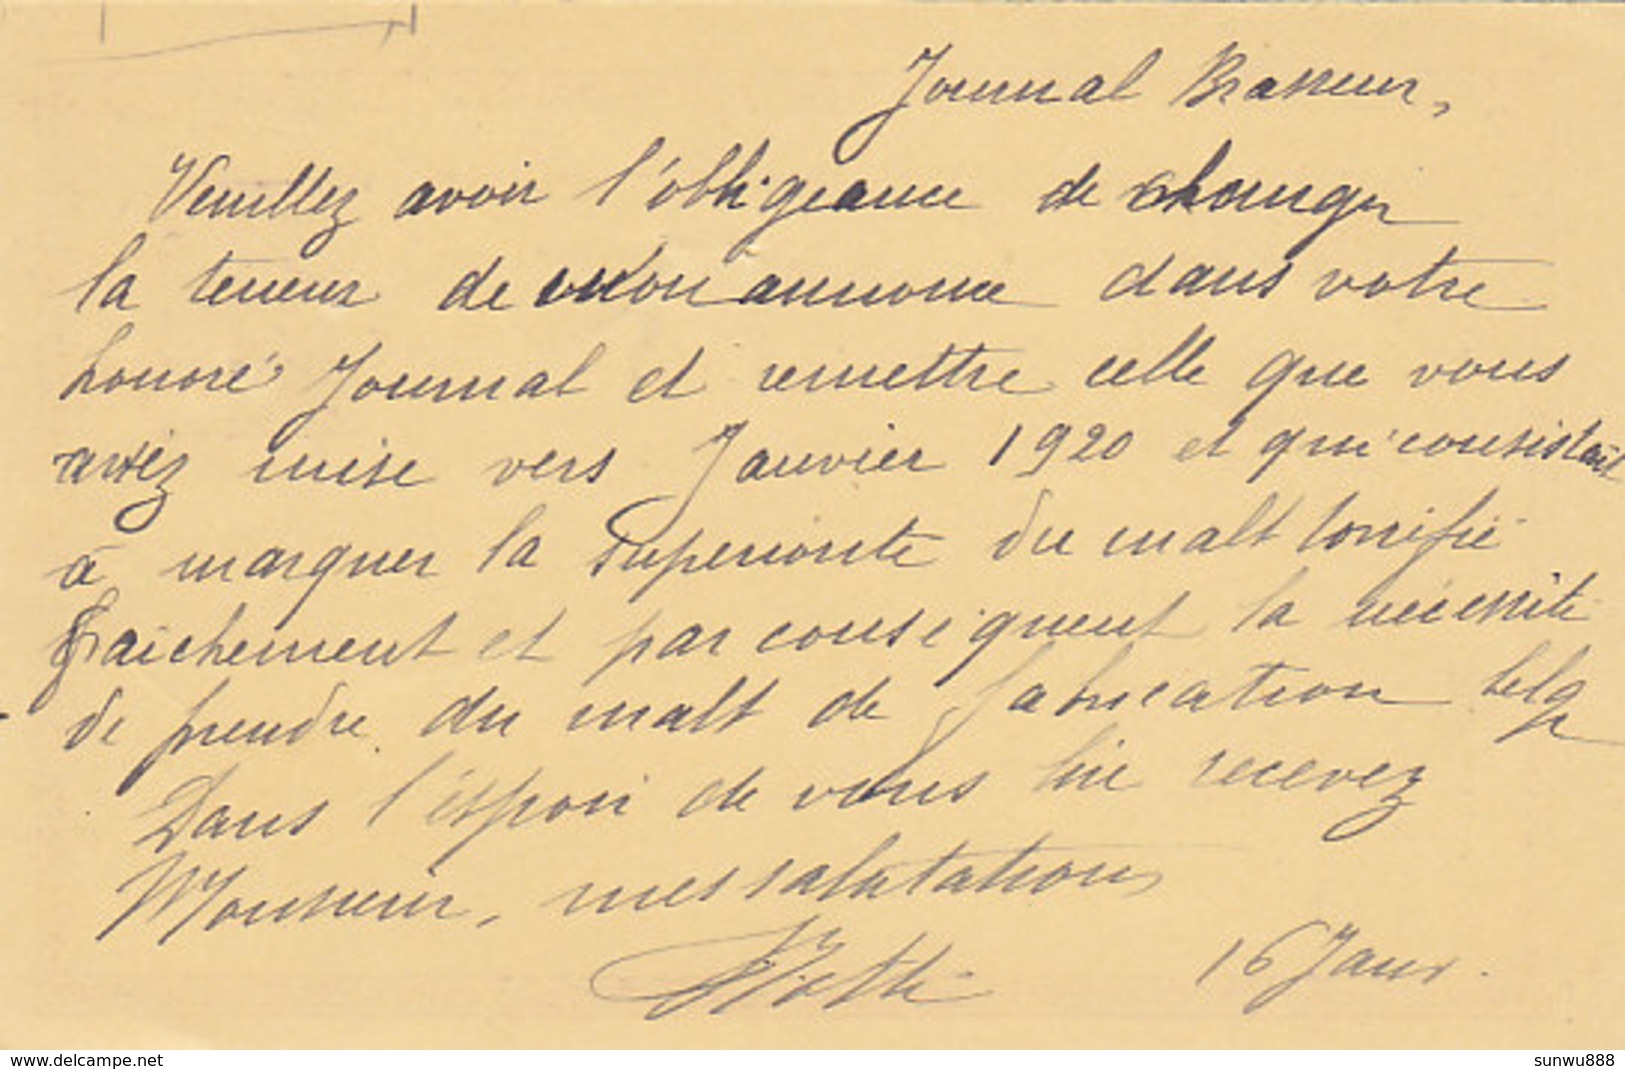 Journal Brasseur,
Veuillez avoir l'obligeance de changer
la teneur de mon annonce dans votre
honoré Journal et remettre celle que vous
aviez mise vers Janvier 1920 et qui consistait
à marquer la superiorité du malt torrifié
fraichement et par conséquent la nécessité
de prendre du malt de fabrication belge
Dans l'espoir de vous lire recevez
Monsieur, mes salutations
16 Janv.
www.delcampe.net
sunwu888